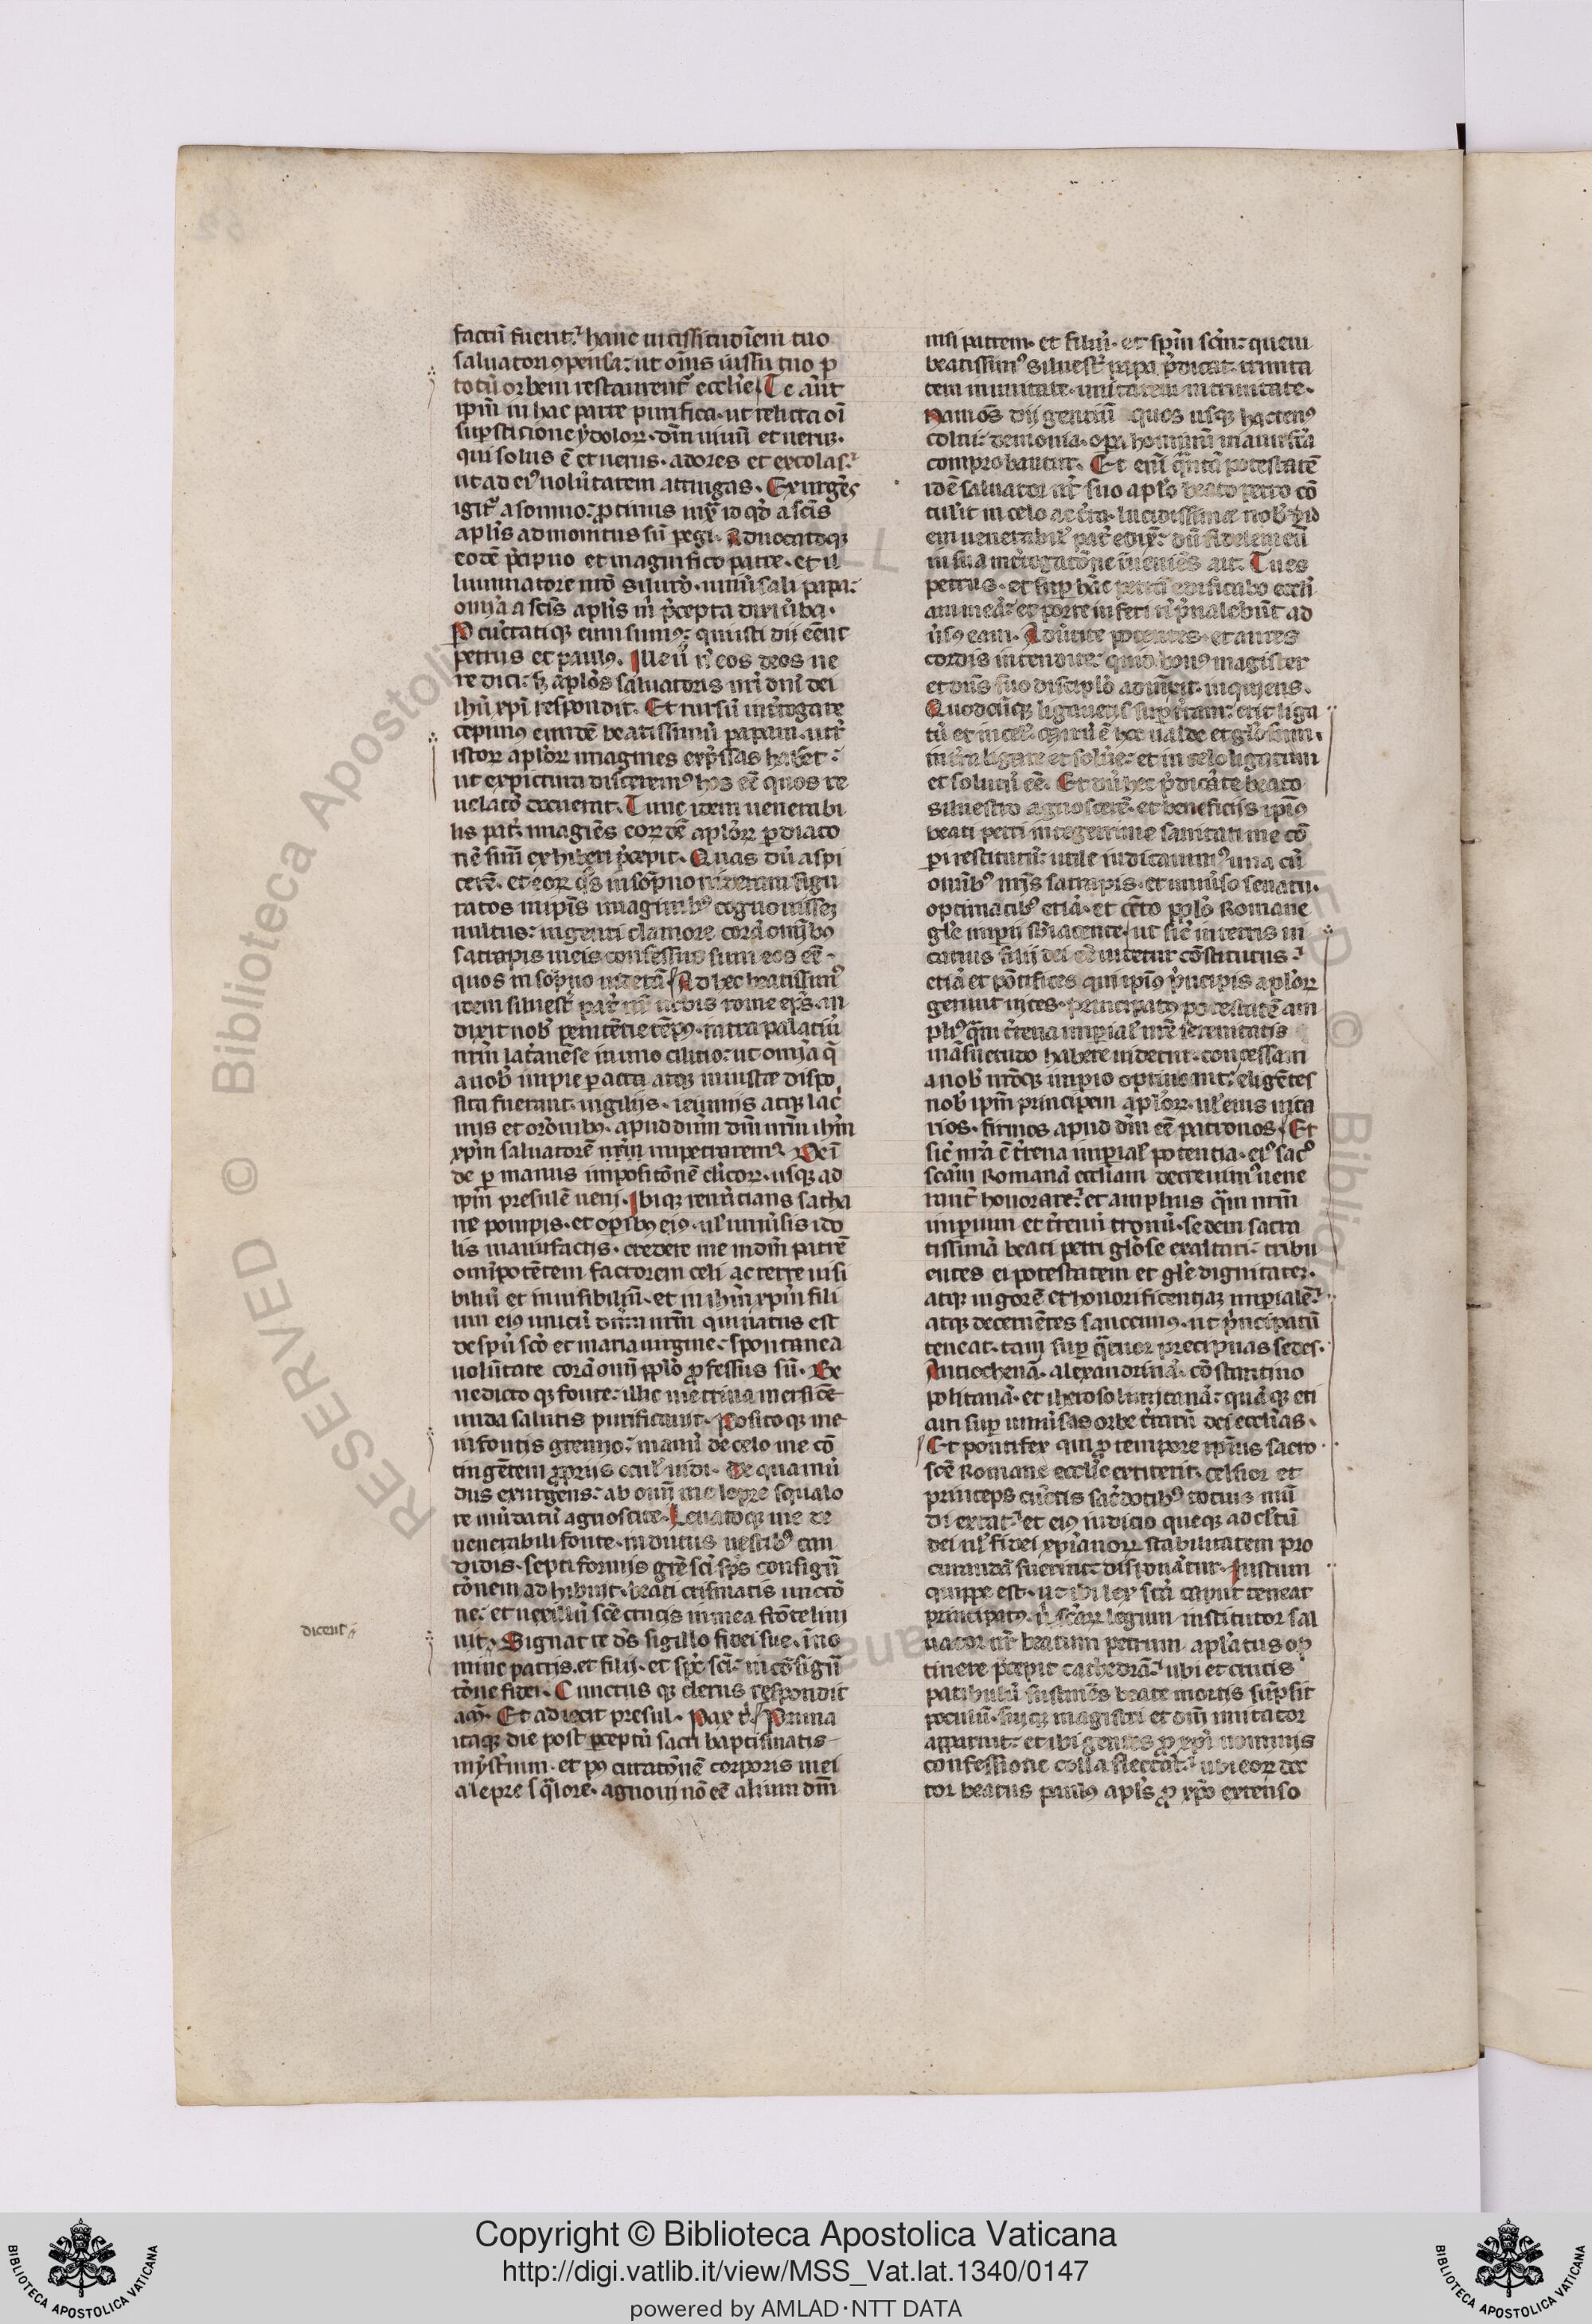 factũ fuerit: hanc uicissitudinem tuo
saluatori ꝯpensa: ut om̃s iussu tuo p
totũ orbem restaurent᷑ eccl̃ie. Te aũt
ip̃m in hac parte purifica. ut relicta oĩ
sup̱sticione ydolorꝝ. dm̃ uiuũ et uerum.
qui solus ẽ et uerus. adores et excolas.
ut ad ei᷒ uolũtatem attingas. Exurgẽs
igit᷑ a somno: ꝓtinus iux̃ id qđ a scĩs
apl̃is admonitus sũ pegi. Aduocatoqꝫ
eodẽ p̃cipuo et magnifico patre. et il
luminatore nr̃o siluestro. uniũsali papa:
om̃ia a scĩs apl̃is m̃ p̃cepta dixi ũba.
Pcũctatiqꝫ eum sumꝰ: qui isti dii eẽnt
petrus et paulꝰ. Ille ũ nõ eos deos ue
re dici: sꝫ apl̃os saluatoris nr̃i dni dei
ihũ xpi respondit. Et rursũ int̃rogare
cepimꝰ eundẽ beatissimũ papam. utr̃
istorꝝ apl̃orꝝ imagines exp̃ssas haberet:
ut ex pictura disceremꝰ hos eẽ quos re
uelatõ docuerat. Tunc idem uenerabi
lis pat̃ imagiẽs eorꝝdẽ apl̃orꝝ p diaco
nẽ suũ exhiberi p̃cepit. Quas dũ aspi
cerẽ. et eorꝝ q̃s in sõpno uideram figu
ratos in ip̃is imaginibꝰ cognouissem
uultus: ingenti clamore corã om̃ibꝰ
satrapis meis confessus sum eos eẽ
quos in sõpno uiderã. Ad hec beatissimꝰ
idem siluest̃ pat̃ nr̃ urbis rome ep̃s. in
dixit nob̃ penitẽcie tẽpꝰ. intra palatiũ
nr̃m lat̃anẽse in uno cilicio: ut om̃ia q̃
a nob̃ impie pacta atqꝫ iniuste dispo
sita fuerant. uigiliis. ieiuniis atqꝫ lac̃
mis et orõnibꝰ. apud dnm̃ dm̃ nr̃m ihm̃
xp̃m saluatorẽ nr̃m impetraremꝰ. Deĩ
de p manus impositõnem cl̃icorꝝ. usqꝫ ad
ip̃m presulẽ ueni. Ibiqꝫ renũcians satha
ne pompis. et op̱ibꝰ eiꝰ. ul̃ uniũsis ido
lis manufactis. credere me in dm̃ patrẽ
omĩpotẽtem factorem celi ac terre uisi
biliũ et inuisibiliũ. et in ihm̃ xp̃m fili
um eiꝰ unicũ dnm̃ nr̃m qui natus est
de sp̃u scõ et maria uirgine: spontanea
uolũtate corã omĩ pp̃lo ꝓfessus sũ. Be
nedicto qꝫ fonte: illic me trina mersiõe
unda salutis purificauit. Posito qꝫ me
in fontis gremio: manũ de celo me cõ
tingẽtem ꝓpriis ocul̃ uidi. De qua mũ
dus exurgẽns: ab omĩ me lepre squalo
re mũdatũ agnoscite. Leuatoqꝫ me de
uenerabili fonte. indutus uestibꝰ can
didis. septiformis grẽ scĩ sp̃s consigñ
tõnem adhibuit. beati crismatis unctõ
ne: et uexillũ scẽ crucis in mea frõte lini
uit. Signat te dš sigillo fidei sue. in no
mine patris. et filii. et sp̃c scĩ: in cõsigñ
tõne fidei. Cunctus qꝫ clerus respondit
am̃. Et adiecit presul. Pax t̃. Prima
itaqꝫ die post p̱ceptũ sacri baptismatis
mỹst̃rium. et pꝰ curatõnẽ corporis mei
a lepre sq̃lore. agnoui nõ eẽ alium dm̃
dicent᷑
nisi patrem. et filiũ. et sp̃m scm̃: quem
beatissimꝰ siluest̃ papa p̃dicat. trinita
tem in unitate. unitatem in trinitate.
Nam oẽs dii gentiũ quos usqꝫ hactenꝰ
colui: demonia. op̱a hominũ manufc̃a
comprobantur. Et eni q̃ntã potestatẽ
idẽ saluator nr̃ suo apl̃o beato petro cõ
tulit in celo ac t̃ra. lucidissime nob̃ idẽ
uenerabil̃ pat̃ edix̃: dũ fidelem eũ
in sua int̃rogatõne inueniẽs ait: Tu es
petrus. et sup̱ hãc petrã edificabo eccl̃i
am meã: et porte inferi nõ p̃ualebũt ad
ũsꝰ eam. Aduertite potentes. et aures
cordis intendite: quid bonꝰ magister
et dñs suo discip̃lo adiũxit. inquiens.
Quodcũqꝫ ligaueris sup̱ t̃ram: erit liga
tũ et in cel̃. Mirũ ẽ hoc ualde et glõsum.
in t̃ra ligare et soluẽ: et in celo ligatum
et solutũ eẽ. Et dũ hec p̃dicãte beato
siluestro agnoscerẽ. et beneficiis ip̃iꝰ
beati petri integerrime sanitati me cõ
pi restitutũ: utile iudicauimꝰ una cũ
om̃ibꝰ nr̃is satrapis. et uniũso senatu.
optimatibꝰ etiã. et cũcto pp̃lo Romane
glẽ imperii sb̃iacente. ut sic̃ in terris ui
carius filii dei eẽ uidetur cõstitutus:
etiã et põtifices qui ip̃iꝰ p̃ncipis apl̃orꝝ
gerunt uices. principatꝰ potestatẽ am
pliꝰ q̃m t̃rena imp̱ial̃ nr̃e serenitatis
mãsuetudo habere uidetur. concessam
a nob̃ nr̃oqꝫ imp̱io optineant: eligẽtes
nob̃ ip̃m principem apl̃orꝝ. ul̃ eius uica
rios. firmos apud dm̃ eẽ patronos. Et
sic̃ nr̃a ẽ t̃rena imp̱ial̃ potentia. eiꝰ sac̃
scam̃ Romanã eccl̃iam decreuimꝰ uene
rant̃ honorare: et amplius q̃m nr̃m
imp̱ium et t̃renũ tronũ. sedem sacra
tissimã beati petri glõse exaltari: tribu
entes ei potestatem et glẽ dignitatem.
atqꝫ uigorẽ et honorificentiam imp̱ialẽ.
atqꝫ decernẽtes sanccimꝰ. ut p̃ncipatũ
teneat. tam sup̱ q̃tuor precipuas sedes.
Antiochenã. alexandrinã. cõstantino
politanã. et iherosolimitanã: quãqꝫ eti
am sup̱ uniũsas orbe t̃rarũ dei eccl̃ias.
Et pontifex qui ꝓ tempore ip̃ius sacro
scẽ Romane eccl̃ie extiterit. celsior et
princeps cũctis sac̃dotibꝰ tocius mũ
di extat: et eiꝰ iudicio queqꝫ ad cl̃tũ
dei ul̃ fidei xp̃ianorꝝ stabilitatem pro
curandã fuerint: disponãtur. Iustum
quippe est. ut ibi lex scã caput teneat
principatꝰ. ubi scãrꝝ legum institutor sal
uator nr̃ beatum petrum. apl̃atus op
tinere p̃cepit cathedrã: ubi et crucis
patibulũ sustinẽs beate mortis sũpsit
poculũ. suiqꝫ magistri et dm̃ imitator
apparuit: et ibi gentes ꝓ xp̃i nominis
confessione colla flectãt: ubi eorꝝ doc
tor beatus paulꝰ apl̃s ꝓ xp̃o extenso
RESERVED © Biblioteca Apostolica
Copyright © Biblioteca Apostolica Vaticana
http://digi.vatlib.it/view/MSS_Vat.lat.1340/0147
powered by AMLAD·NTT DATA
BIBLIOTECA APOSTOLICA VATICANA
BIBLIOTECA APOSTOLICA VATICANA